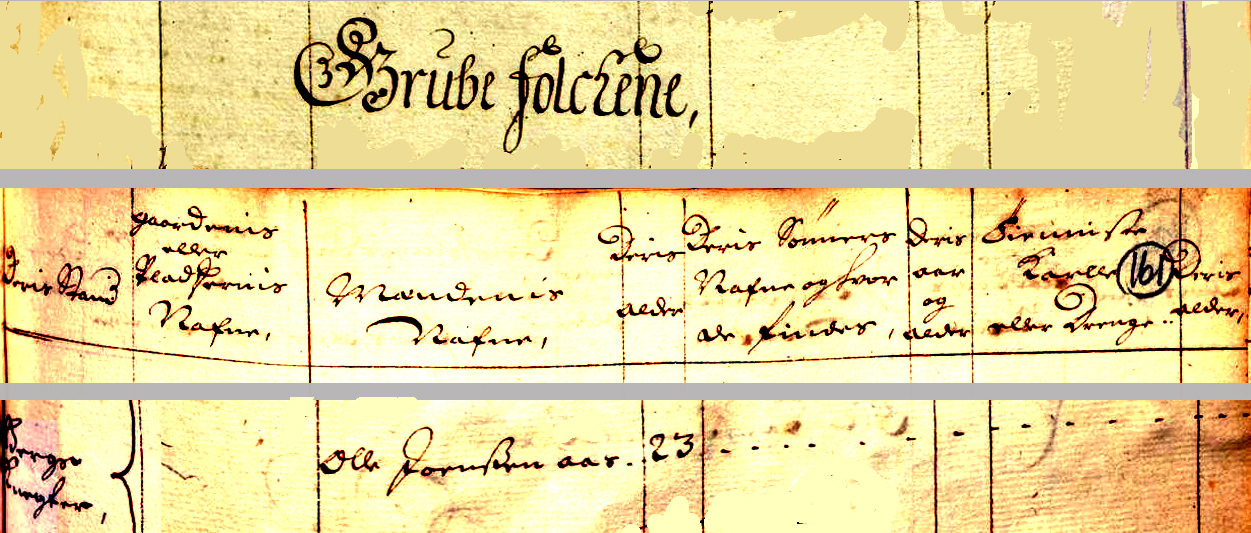 Grube folchene,
Deris Stand
gaardenis
eller
Pladsernis
Nafne,
Mandenis
Nafne,
Deris
alder
Deris Sønners
Nafne og hvor
de findes,
Deris
aar
og
alder
Tienniste
Karlle
eller Drenge..
161
Deris
alder,
Berge
Olle Joenssen aas.
23